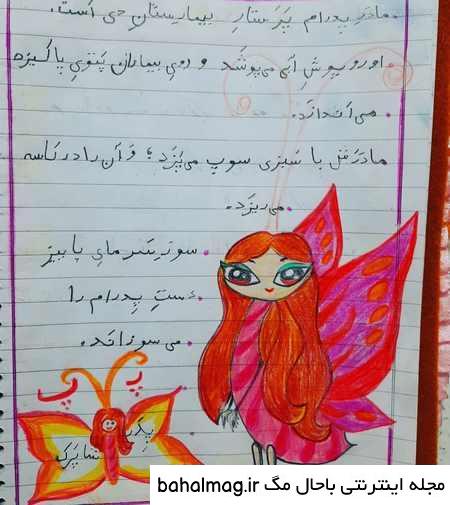 مادرِ پدرام پَرَستارِ بیمارستانِ دی است.
او روپوشِ آبی می‌پوشَد و رویِ بیماران پَتویِ پاکیزه
می‌اندازَد.
مادر با سَبزی سوپ می‌پَزَد؛ وَ آن را در کاسه
می‌ریزَد.
سوزِ سَرمایِ پاییز
دَستِ پِدرام را
می‌سوزاند.
پـ پ
شاپَرَک
مجله اینترنتی باحال مگ bahalmag.ir